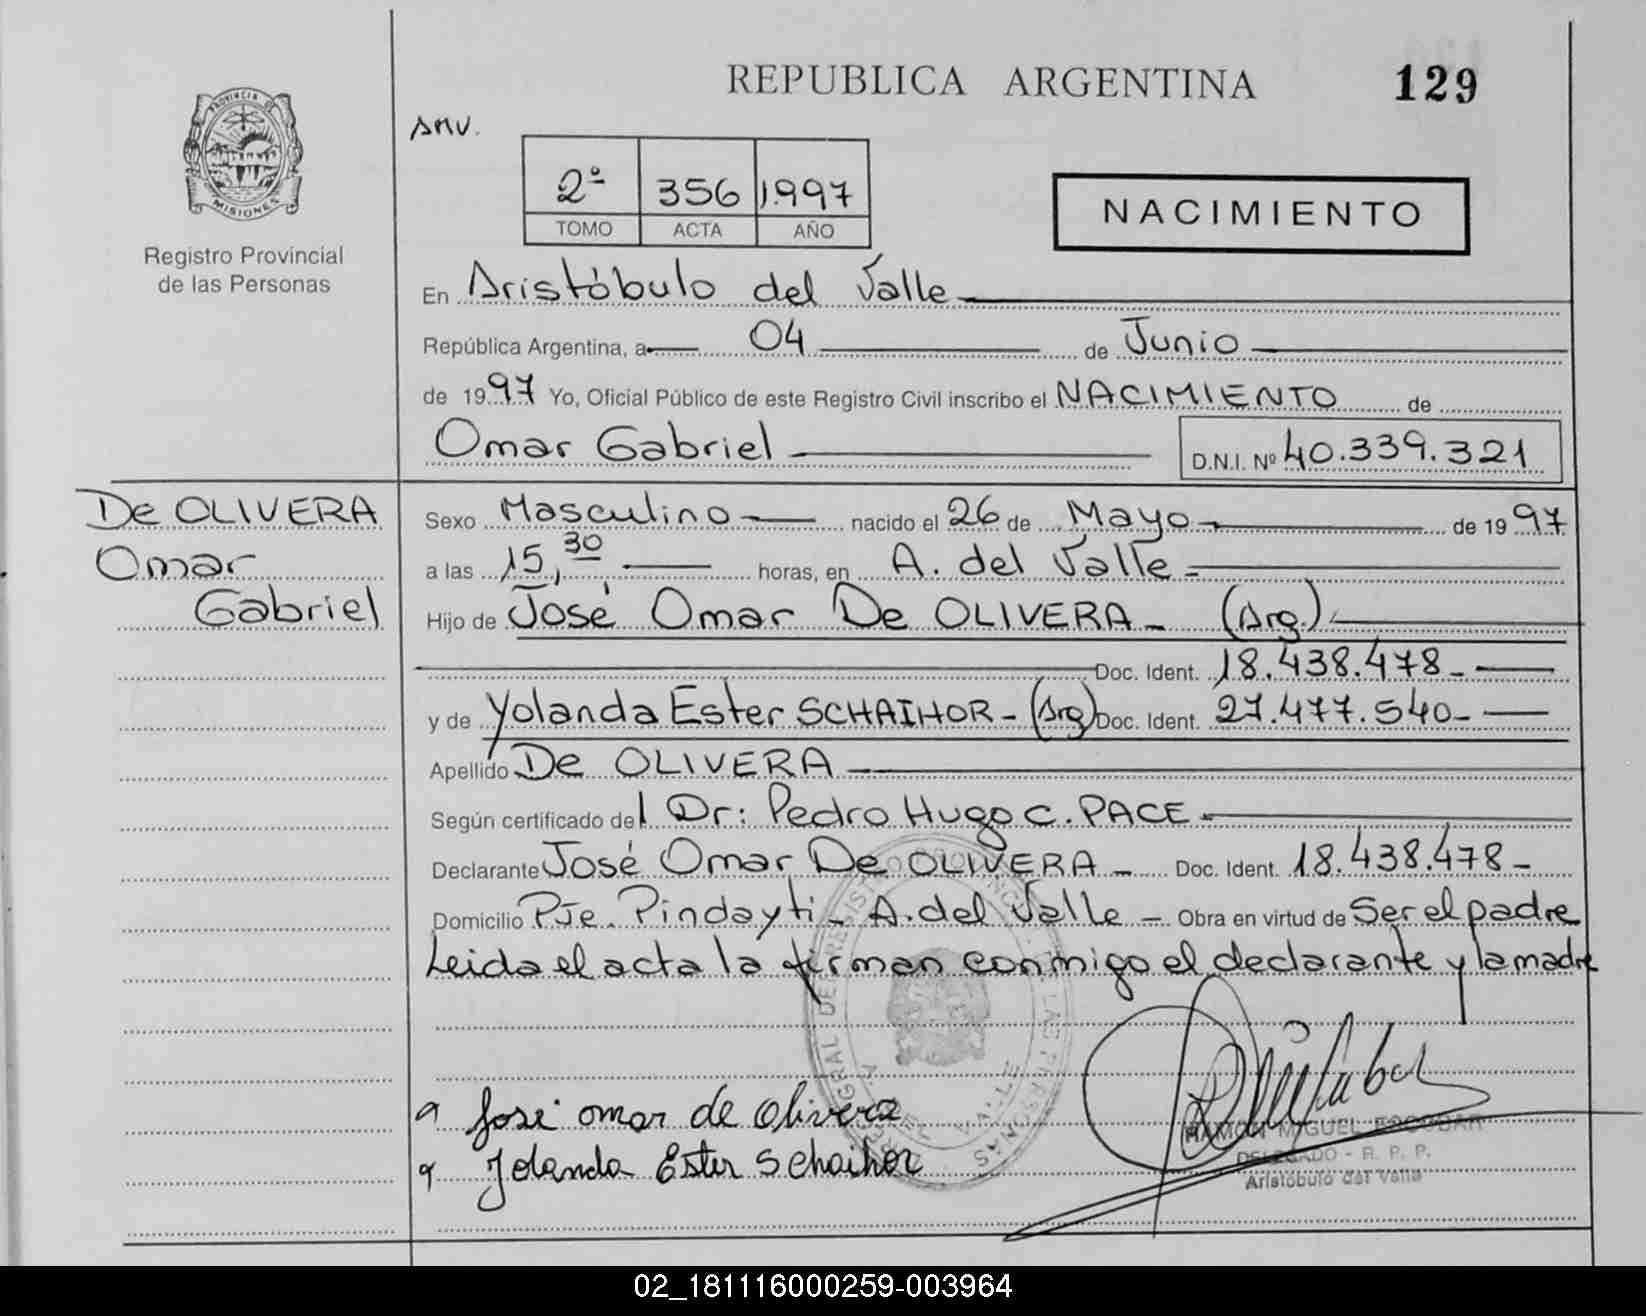 REPUBLICA ARGENTINA
129
PROVINCIA DE
MISIONES
Registro Provincial
de las Personas
AMV.
2º 356 1.997
TOMO ACTA AÑO
NACIMIENTO
En Aristóbulo del Valle
República Argentina, a 04 de Junio
de 1997 Yo, Oficial Público de este Registro Civil inscribo el NACIMIENTO de
Omar Gabriel D.N.I. Nº 40.339.321
De OLIVERA
Omar
Gabriel
Sexo Masculino nacido el 26 de Mayo de 1997.
a las 15,30 horas, en A. del Valle
Hijo de José Omar De OLIVERA (Arg.)
Doc. Ident. 18.438.478
y de Yolanda Ester SCHAIHOR - (Arg) Doc. Ident. 27.477.540
Apellido De OLIVERA
Según certificado del Dr: Pedro Hugo C. PACE
Declarante José Omar De OLIVERA Doc. Ident. 18.438.478
Domicilio Pje. Pindayti - A. del Valle Obra en virtud de Ser el padre
Leida el acta la firman conmigo el declarante y la madre
José omar de olivera
Yolanda Ester Schaihor
RAMON MIGUEL ESCOBAR
DELEGADO - R. P. P.
Aristóbulo del Valle
02_181116000259-003964